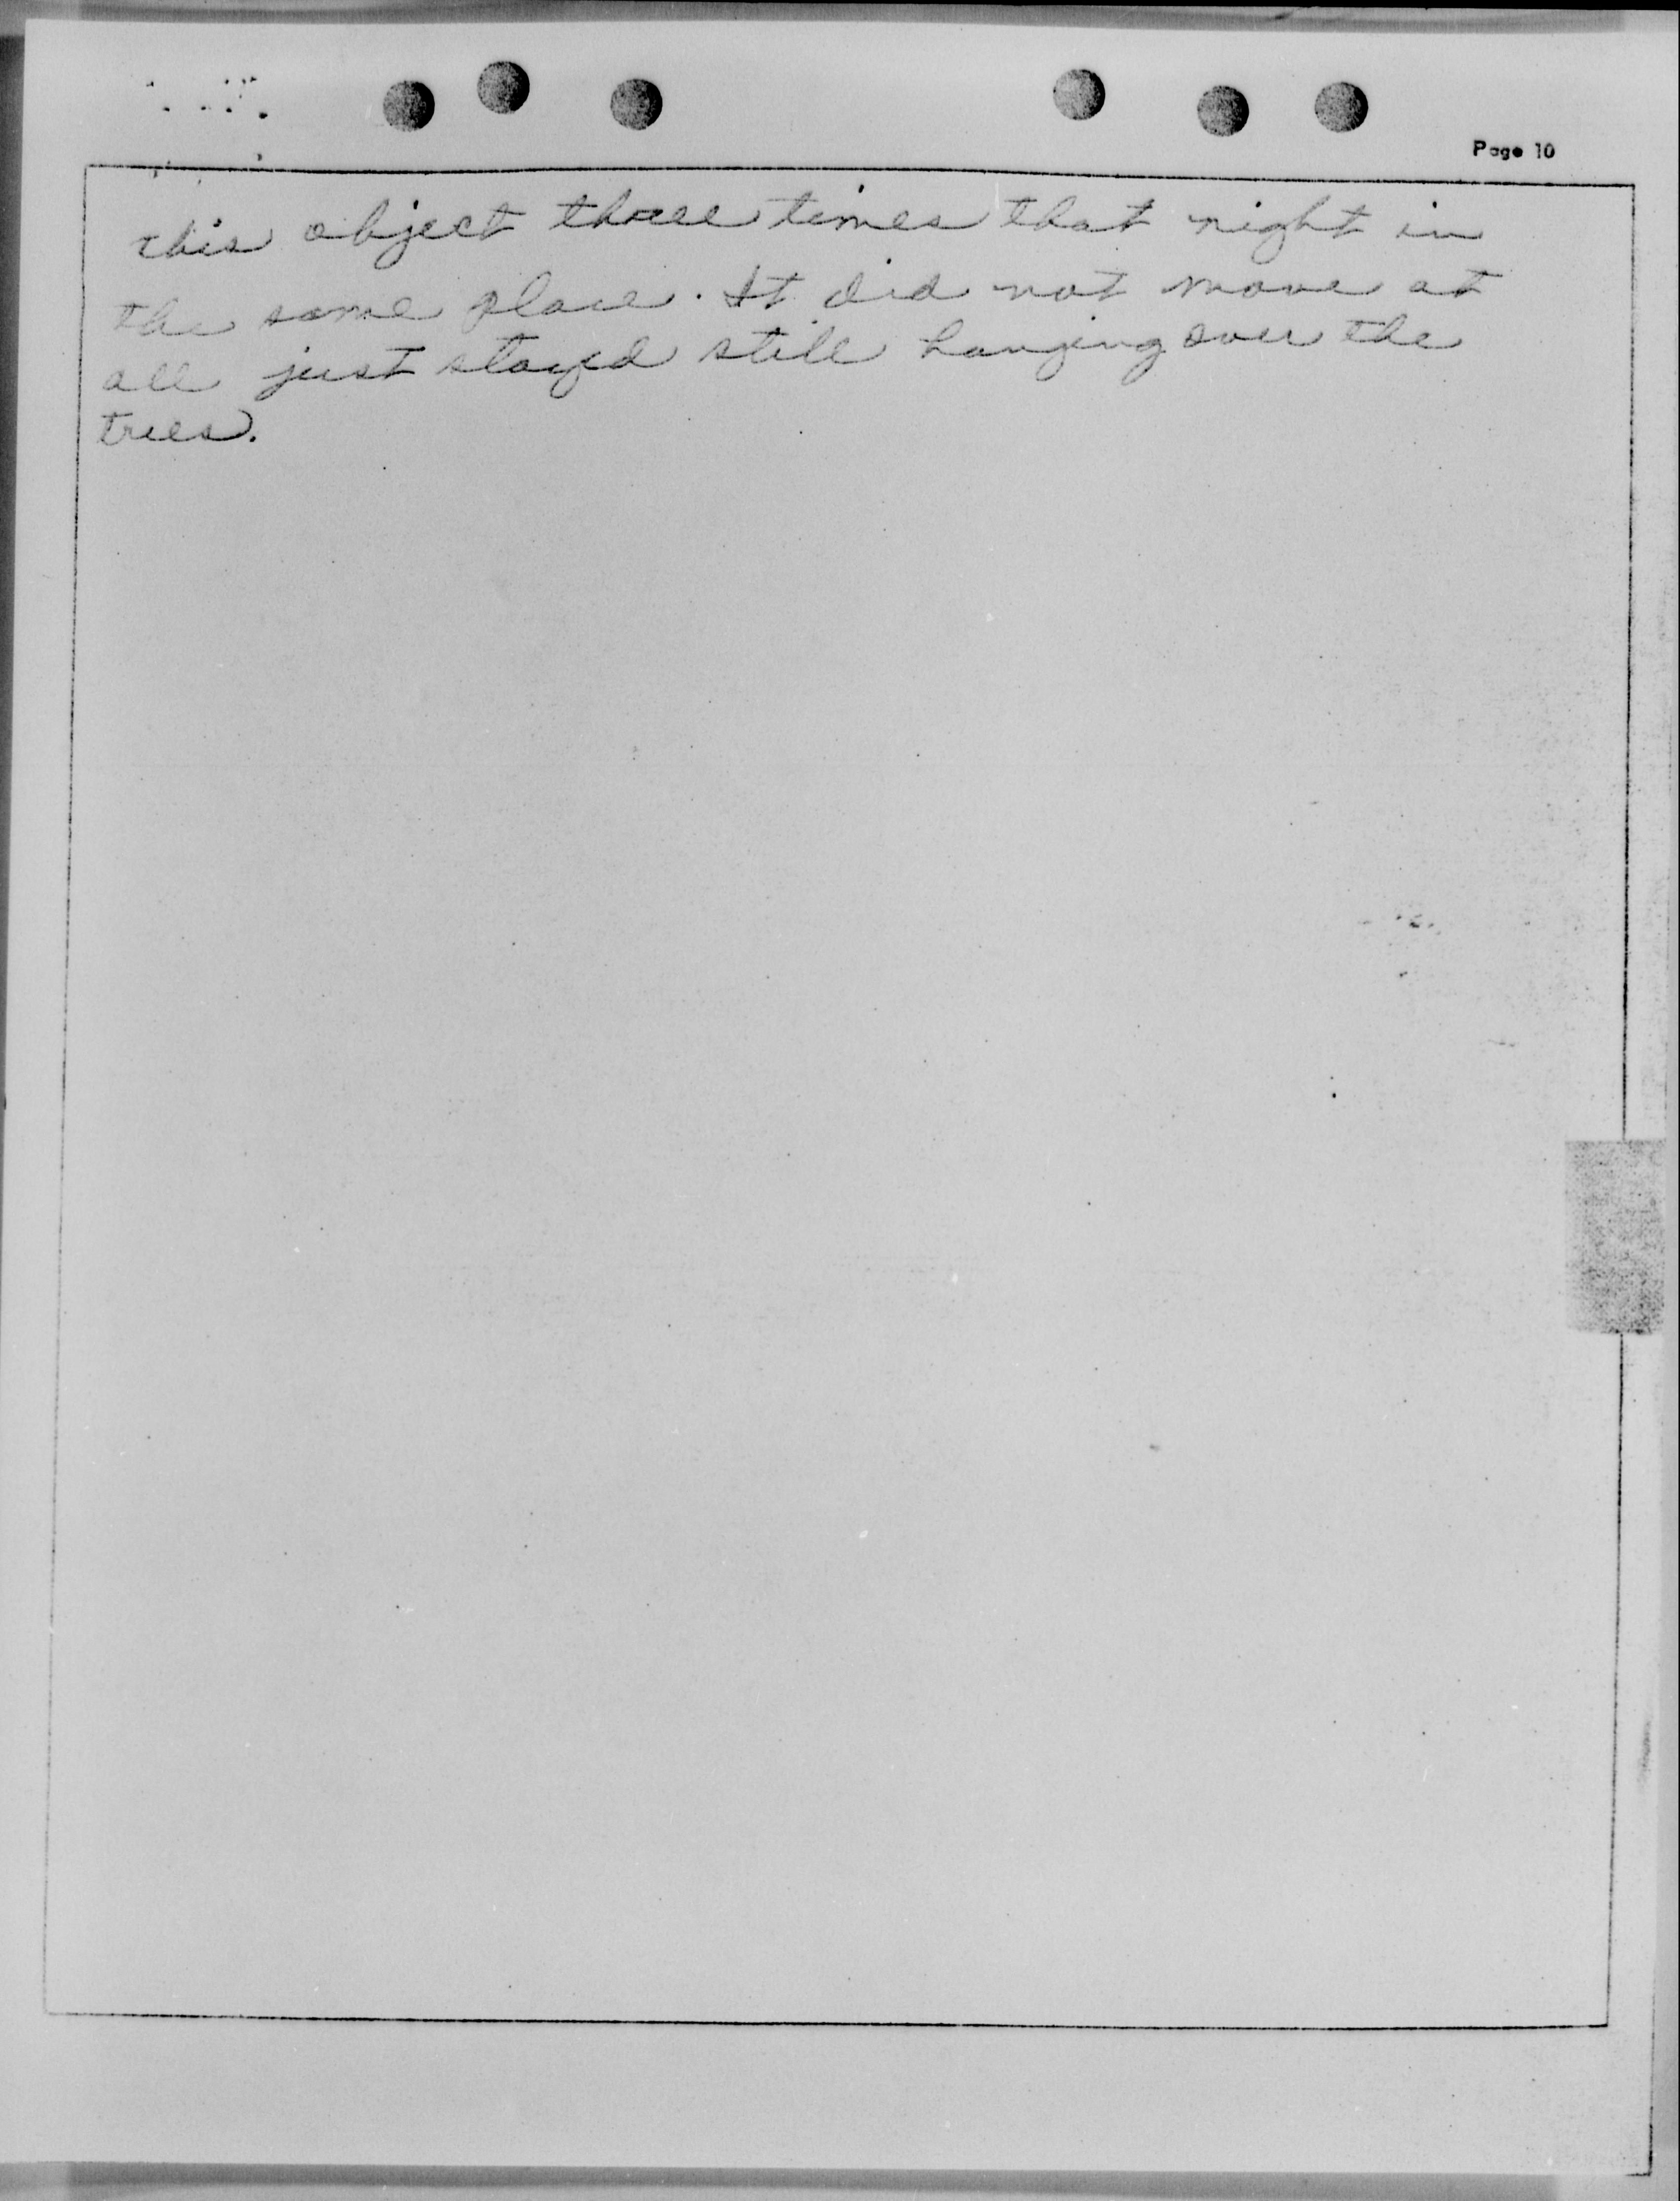 Page 10
this object three times that night in
the same place. It did not move at
all just stayed still hanging over the
trees.